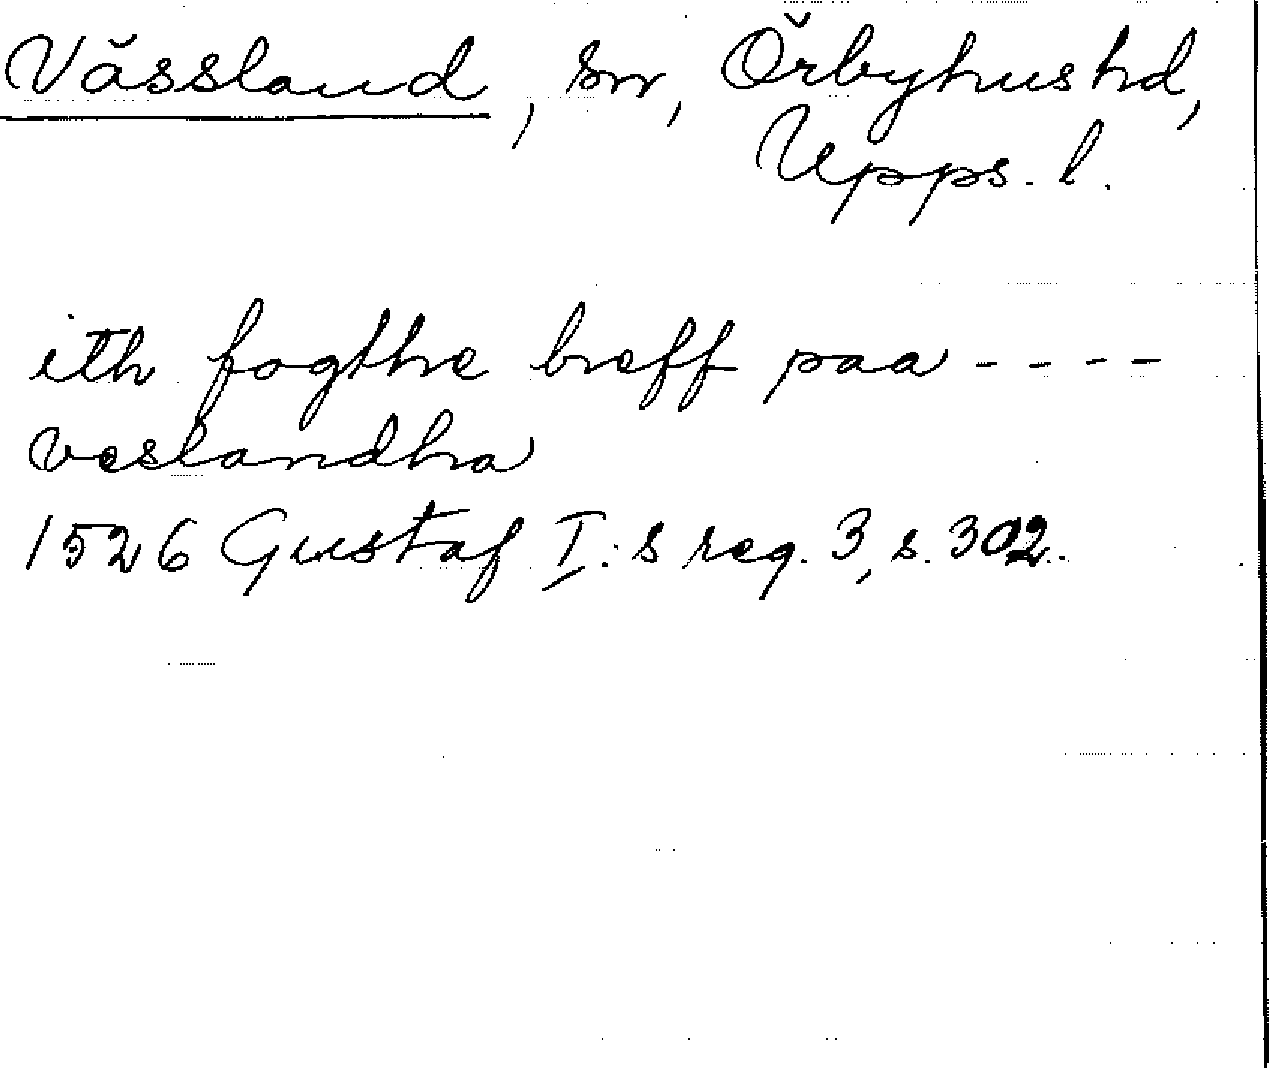 Vässland, sn, Örbyhus hd,
Upps. l.
ith fogthe breff paa - - - -
veslandha
1526 Gustaf I:s reg. 3, s. 302.